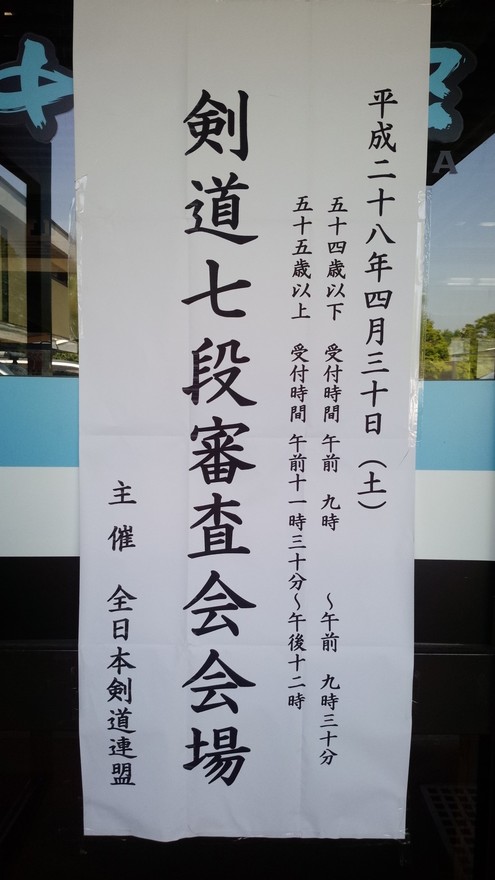 平成二十八年四月三十日（土）
五十四歳以下 受付時間 午前 九時 ～午前 九時三十分
五十五歳以上 受付時間 午前十一時三十分～午後十二時
剣道七段審査会会場
主催 全日本剣道連盟
A